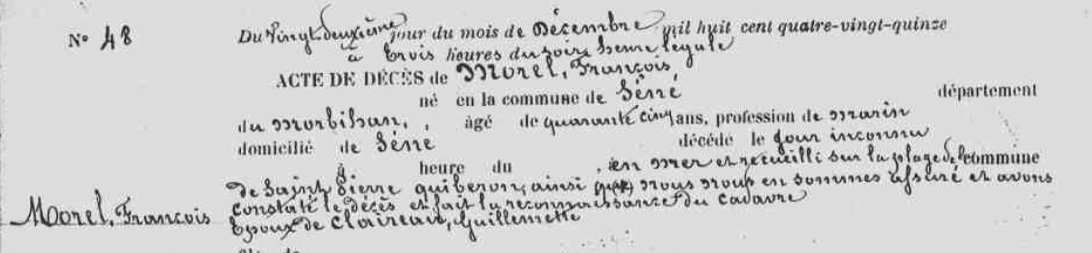 N° 48
Du Vingt-deuxième jour du mois de Décembre mil huit cent quatre-vingt-quinze
à trois heures du soir, heure légale
ACTE DE DÉCÈS de Morel, François,
né en la commune de Séné département
du Morbihan, , âgé de quarante cinq ans, profession de marin
domicilié de Séné décédé le jour inconnu
à heure du , en mer et recueilli sur la plage de la commune
de Saint Pierre quiberon, ainsi que nous nous en sommes assuré et avons
Morel, François constaté le décès et fait la reconnaissance du cadavre
Epoux de Claireau, Guillemette